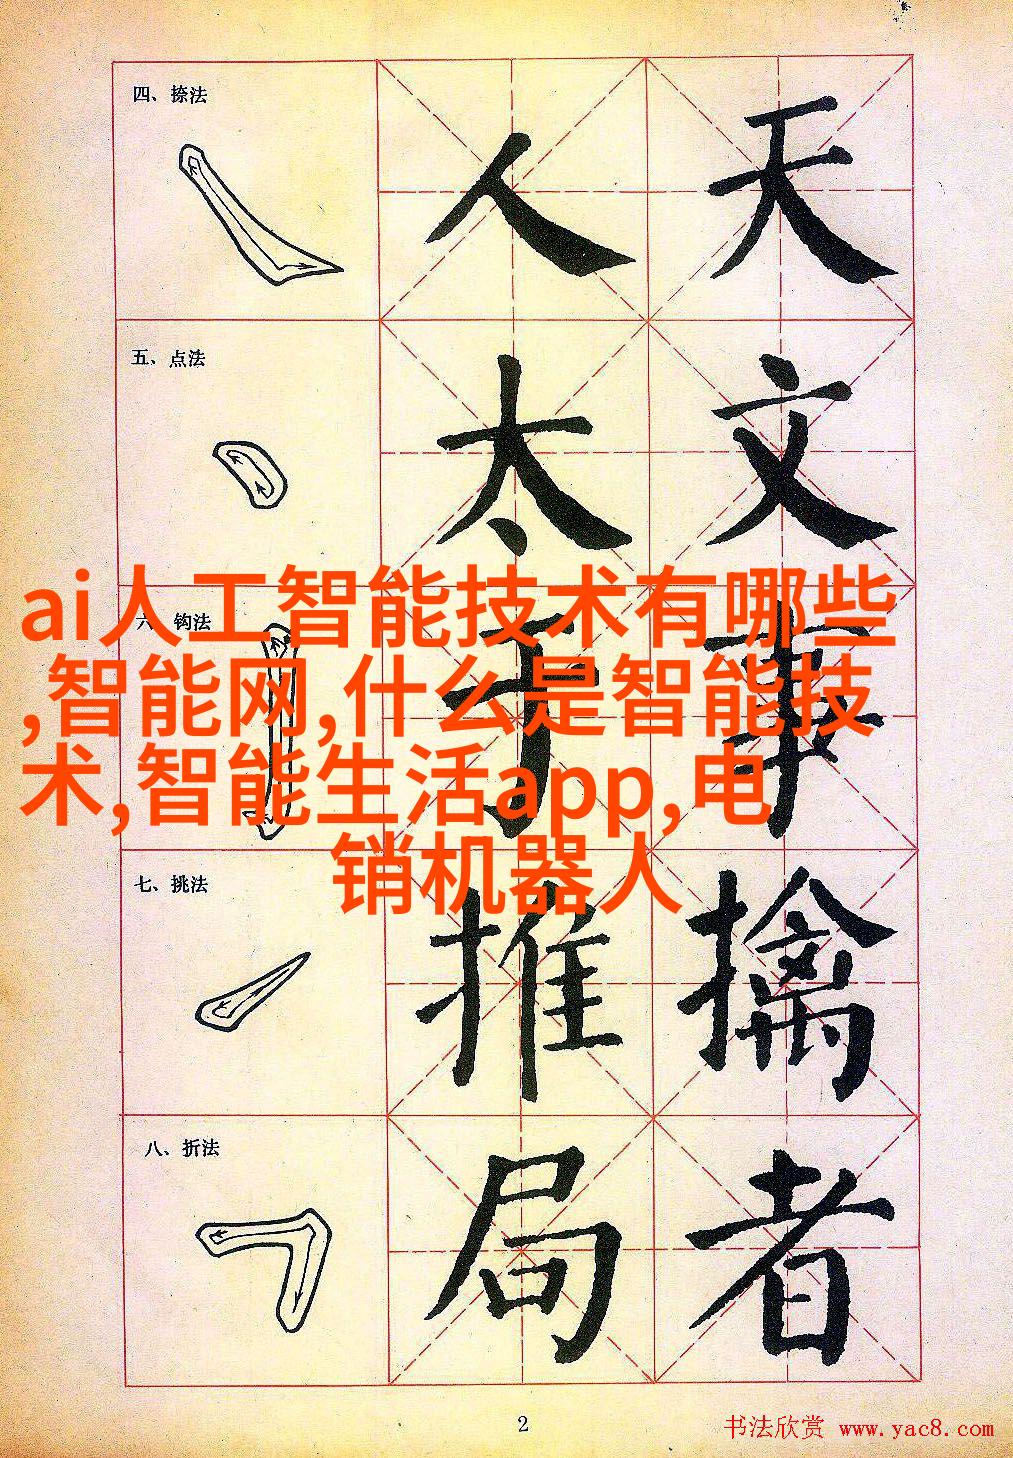 四、捺法
人 天
五、点法
太 文
ai人工智能技术有哪些
,智能网,什么是智能技
术,智能生活app,电
销机器人
六、钩法
于 事
七、挑法
推 擒
八、折法
局 者
2
书法欣赏 www.yac8.com